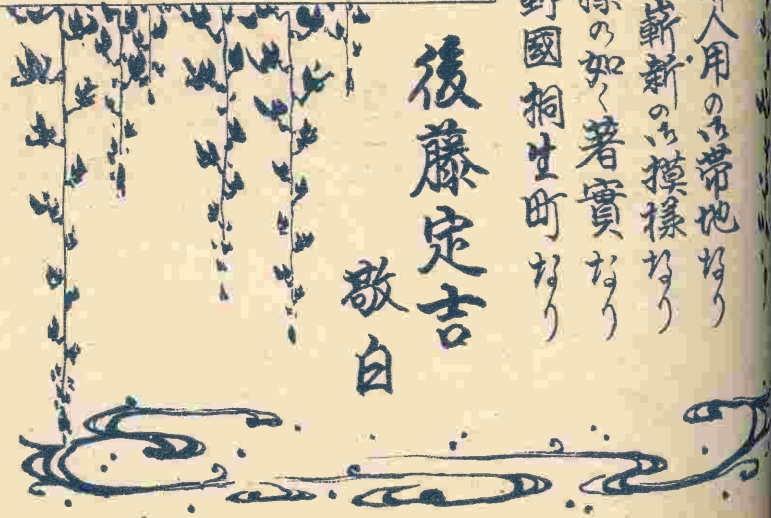 人用の御帯地なり
嶄新の御摸樣なり
の如く著實なり
野國桐生町なり
後藤定吉
敬白